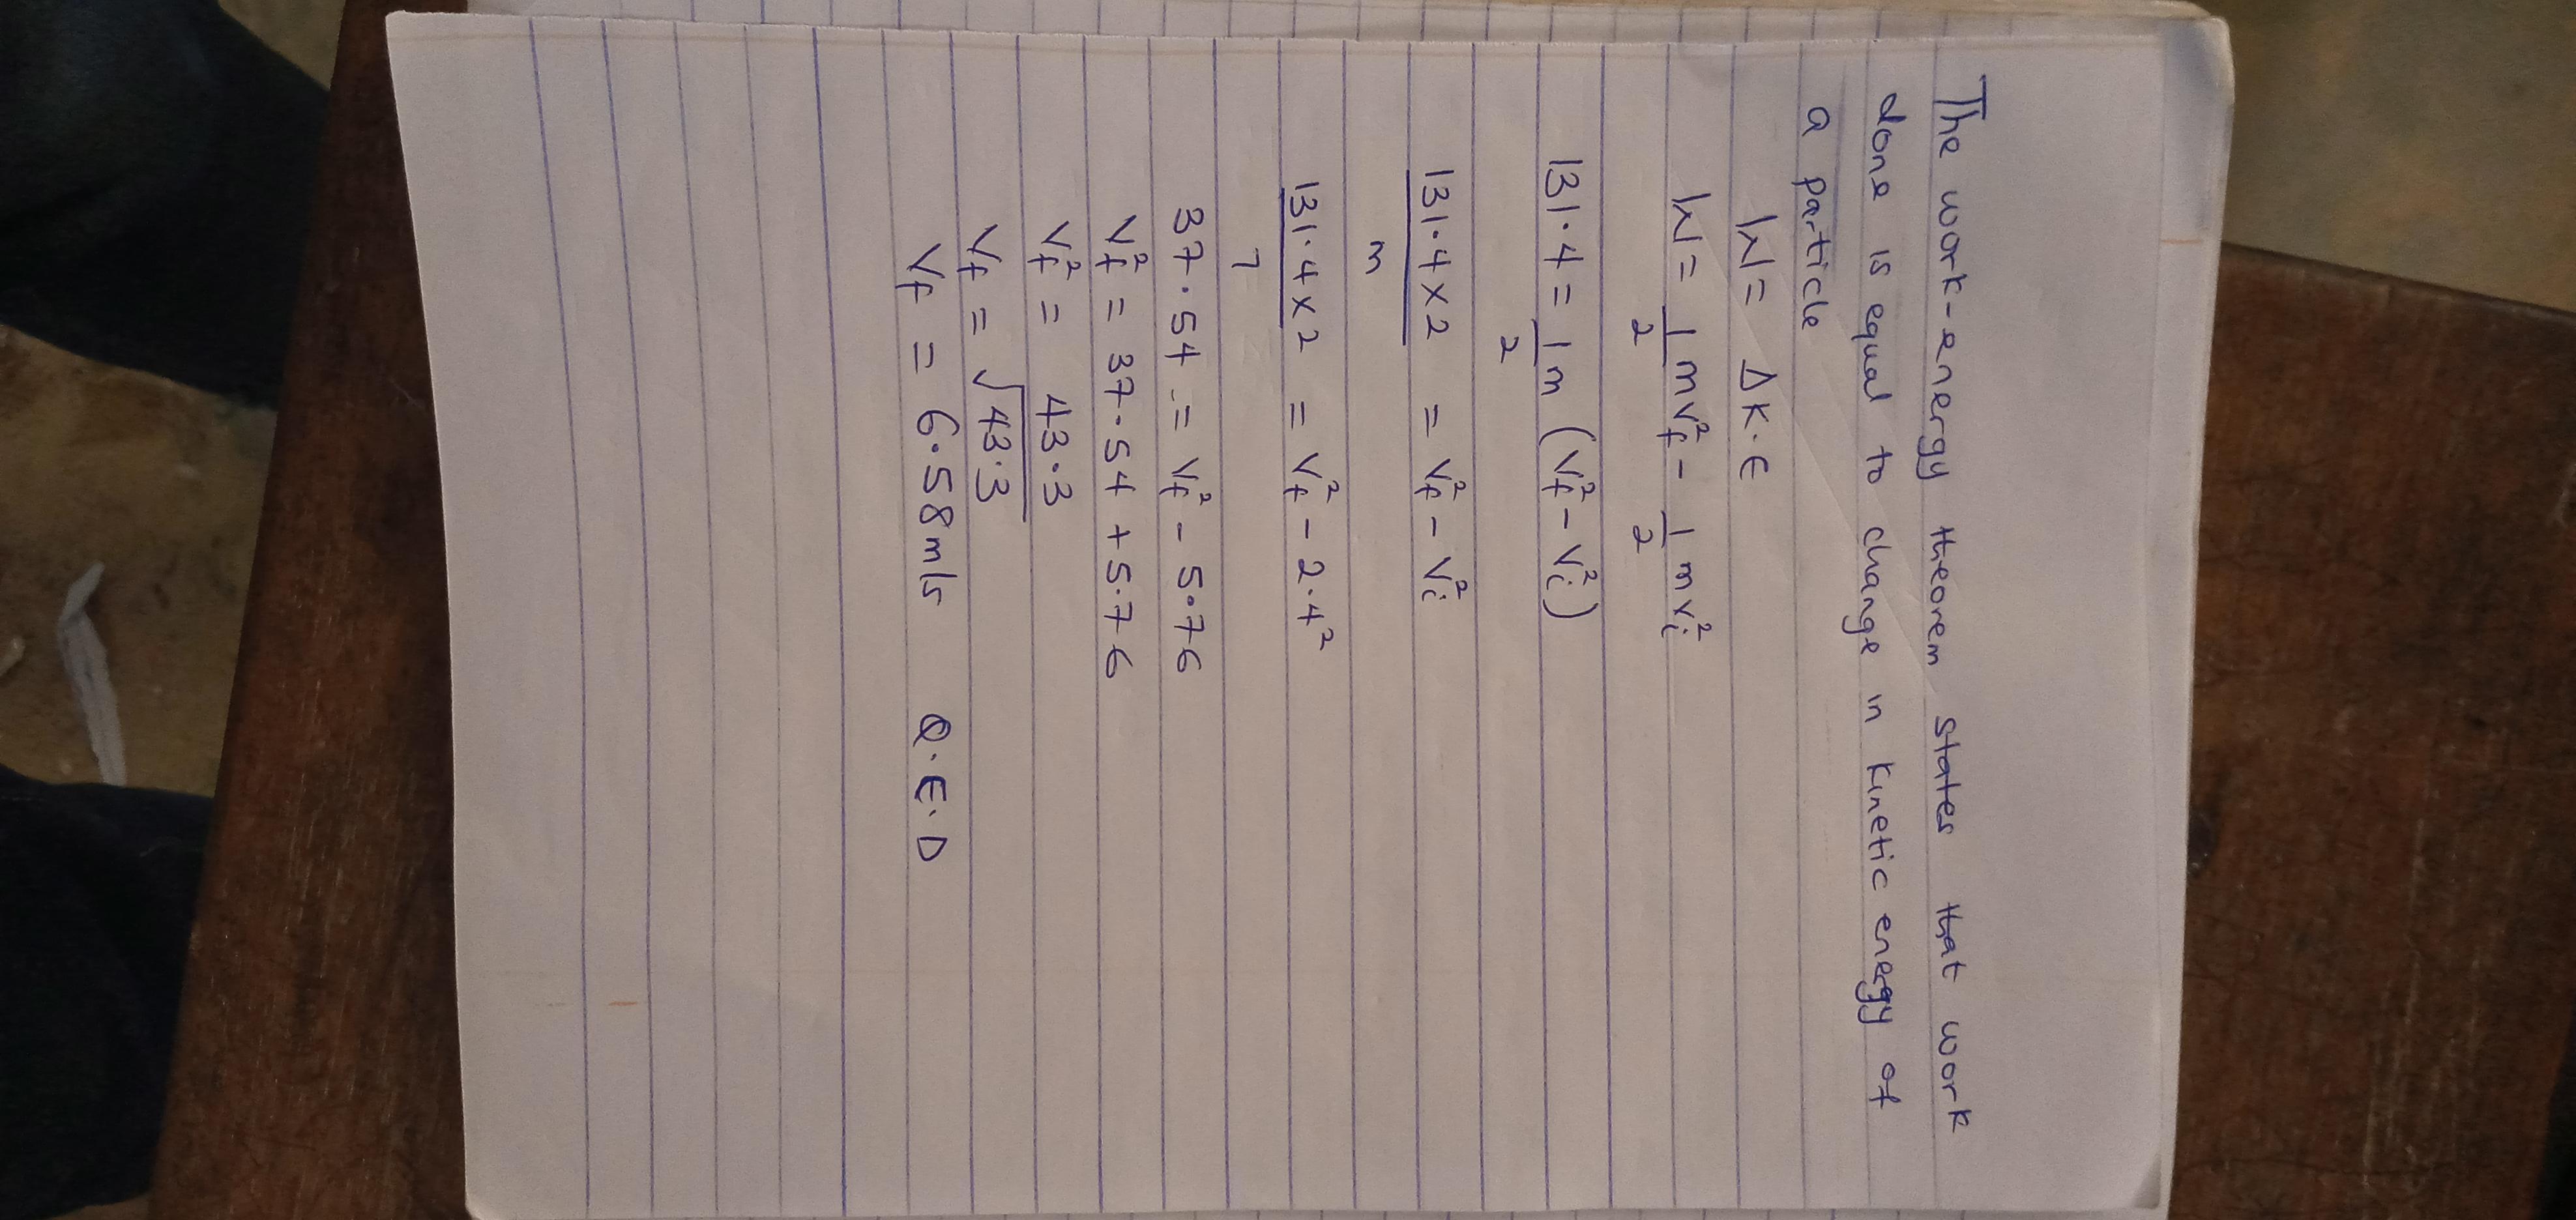 The work-energy theorem states that work
done is equal to change in kinetic energy of
a particle
W = ΔK.E
W = 1/2 mv_f² - 1/2 mv_i²
131.4 = 1/2 m (v_f² - v_i²)
131.4 x 2 / m = v_f² - v_i²
131.4 x 2 / 7 = v_f² - 2.4²
37.54 = v_f² - 5.76
v_f² = 37.54 + 5.76
v_f² = 43.3
v_f = √43.3
v_f = 6.58m/s Q.E.D